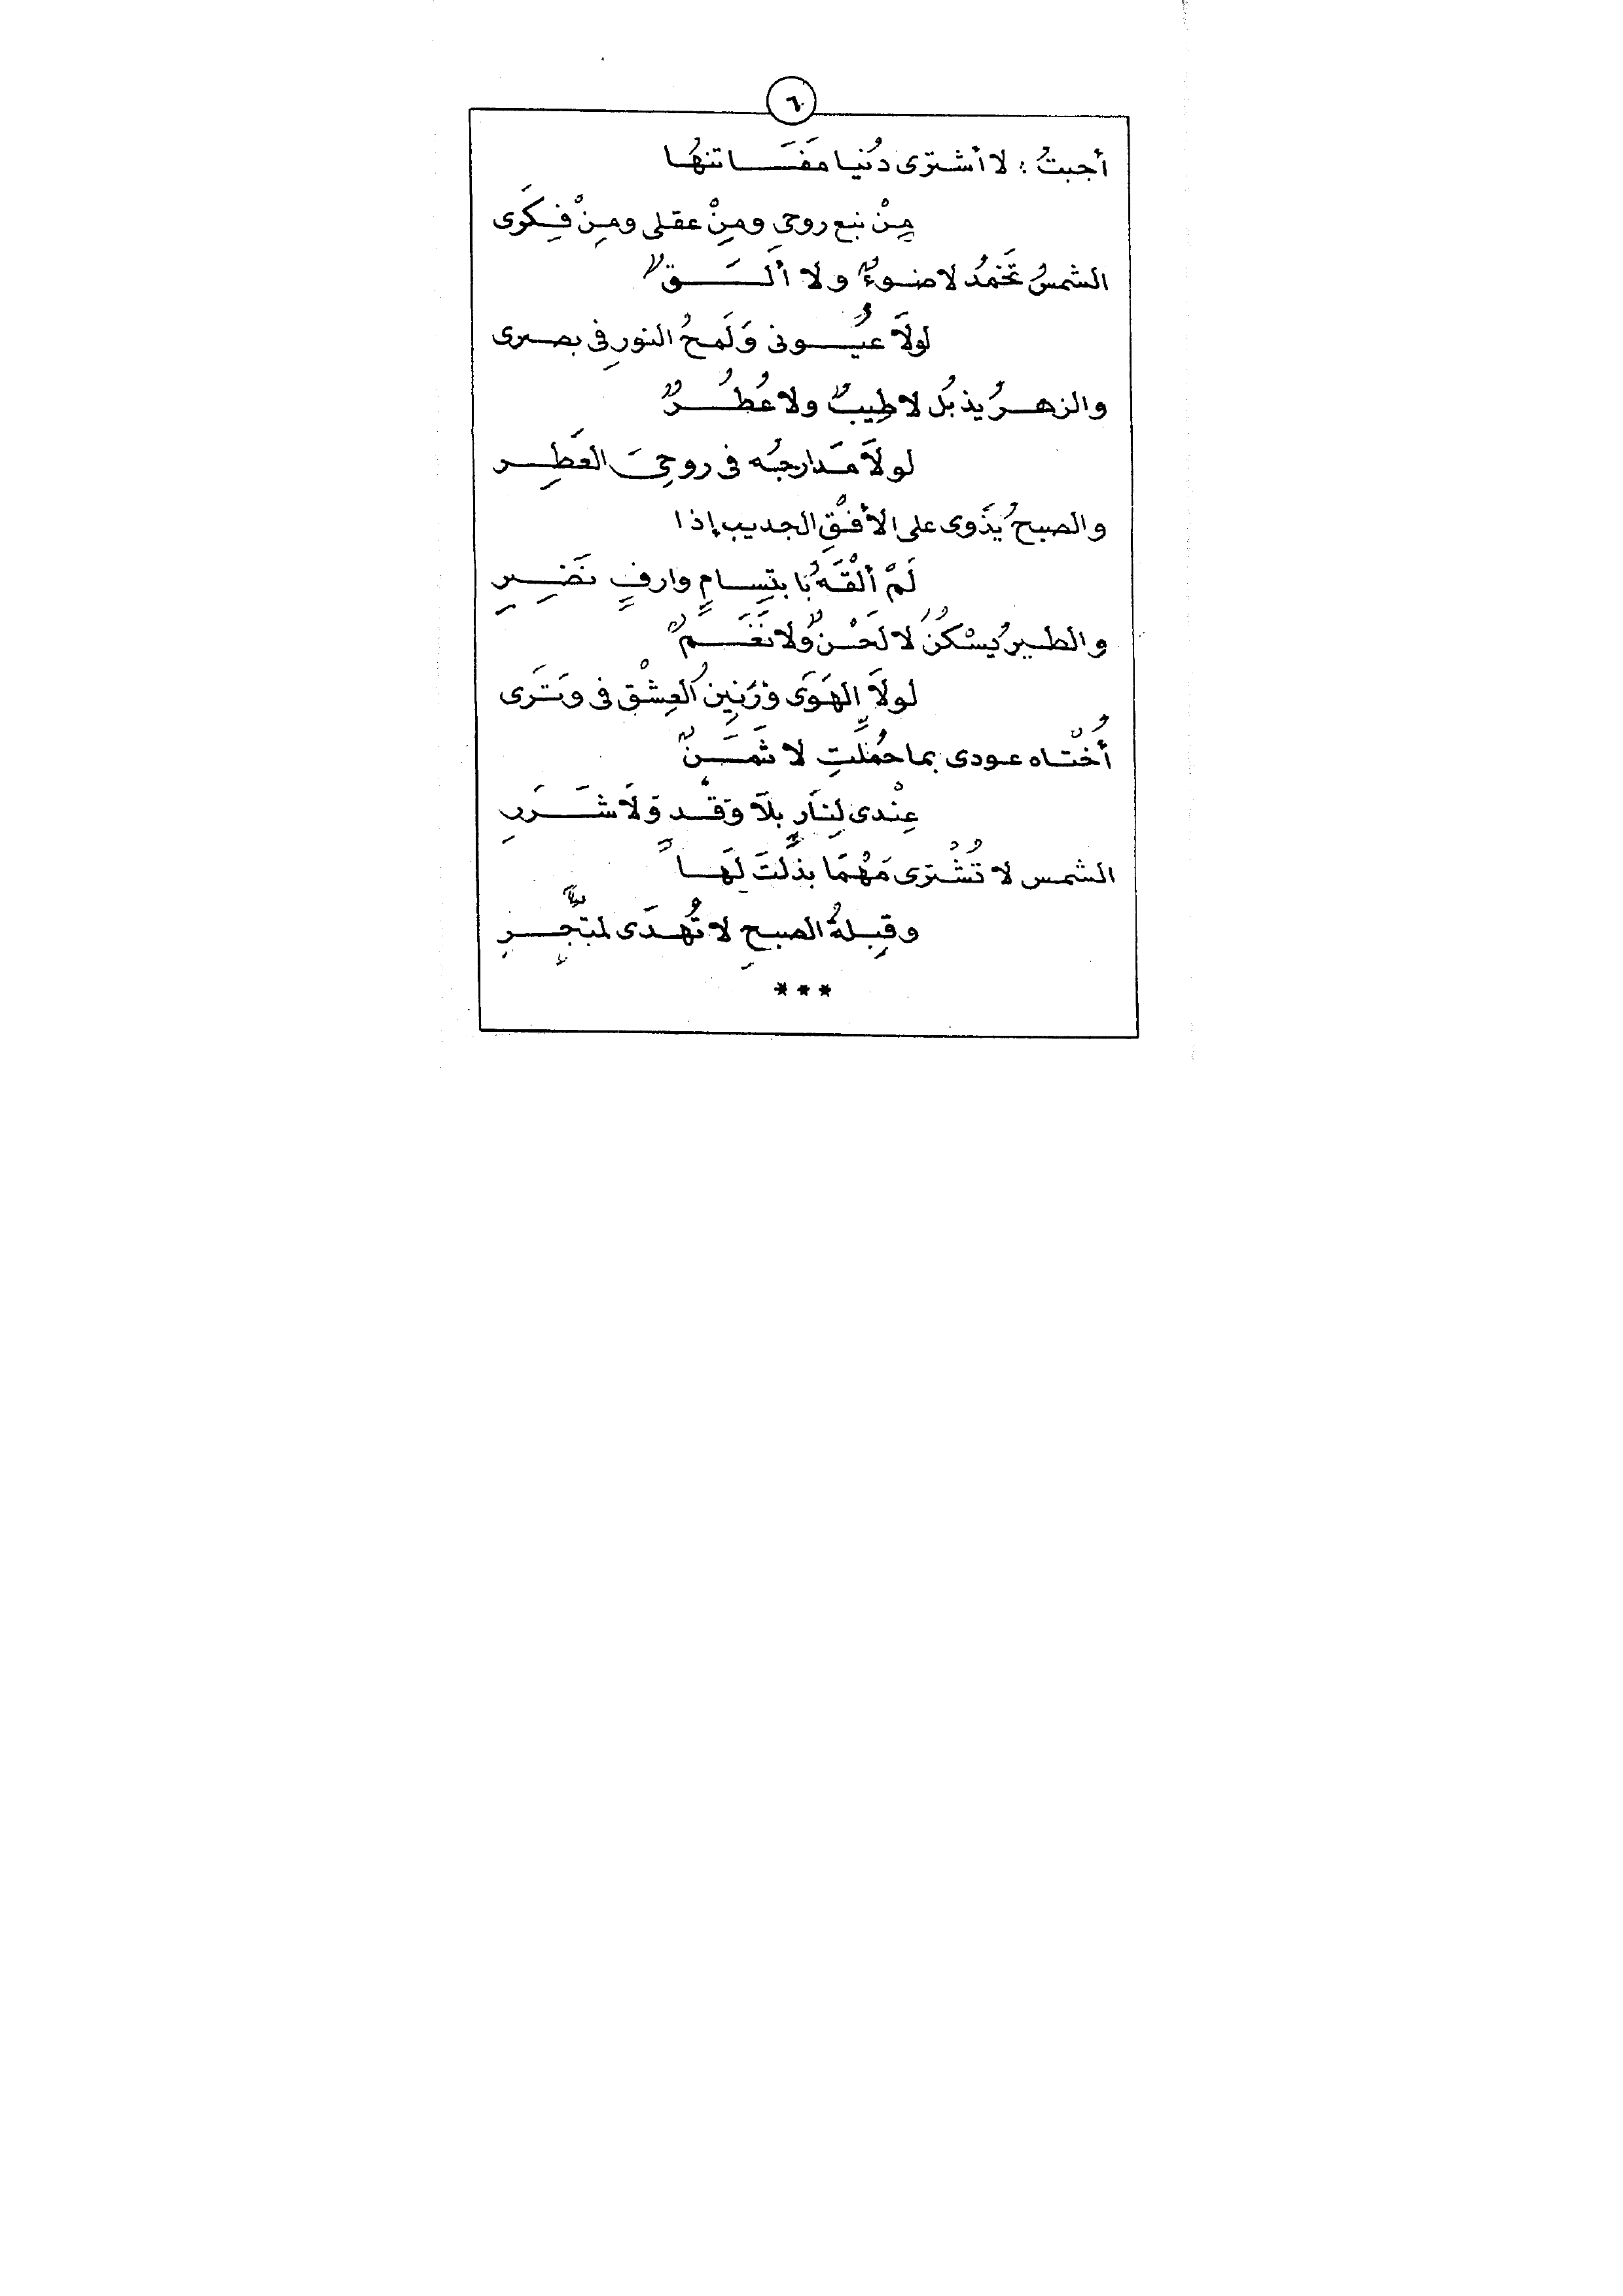 ٦
أجبتُ : لا أشترى دُنيا مَفَاتنهُا
مِنْ نبع روحي ومِنْ عقلى ومِنْ فِكَرى
الشمسُ تَخمَدُ لا ضوءٌ ولا ألَقٌ
لولاَ عيُونى وَلَمحُ النورِ فى بصرى
والزهرُ يذبُل لا طِيبٌ ولا عُطُرٌ
لولاَ مَدارجُه فى روحِىَ العَطِر
والصبحُ يَذْوى على الأفْقِ الجديب إذا
لَمْ ألْقَهُ بابتِسامٍ وارفٍ نَضِيرِ
والطيرُ يسْكُنُ لا لَحْنٌ ولا نَغَمٌ
لولاَ الهَوَى وَرَنِينُ العِشْق فى وَتَرى
أُختْاه عودى بما حُمِّلتِ لا ثَمَنٌ
عِنْدى لِنَارٍ بلاَ وَقْدٍ وَلاَ شَرَرِ
الشمس لا تُشْترى مَهْمَا بذَلتَ لَهَا
وقِبلةُ الصبحِ لا تُهدَى لمتَّجِرِ
***